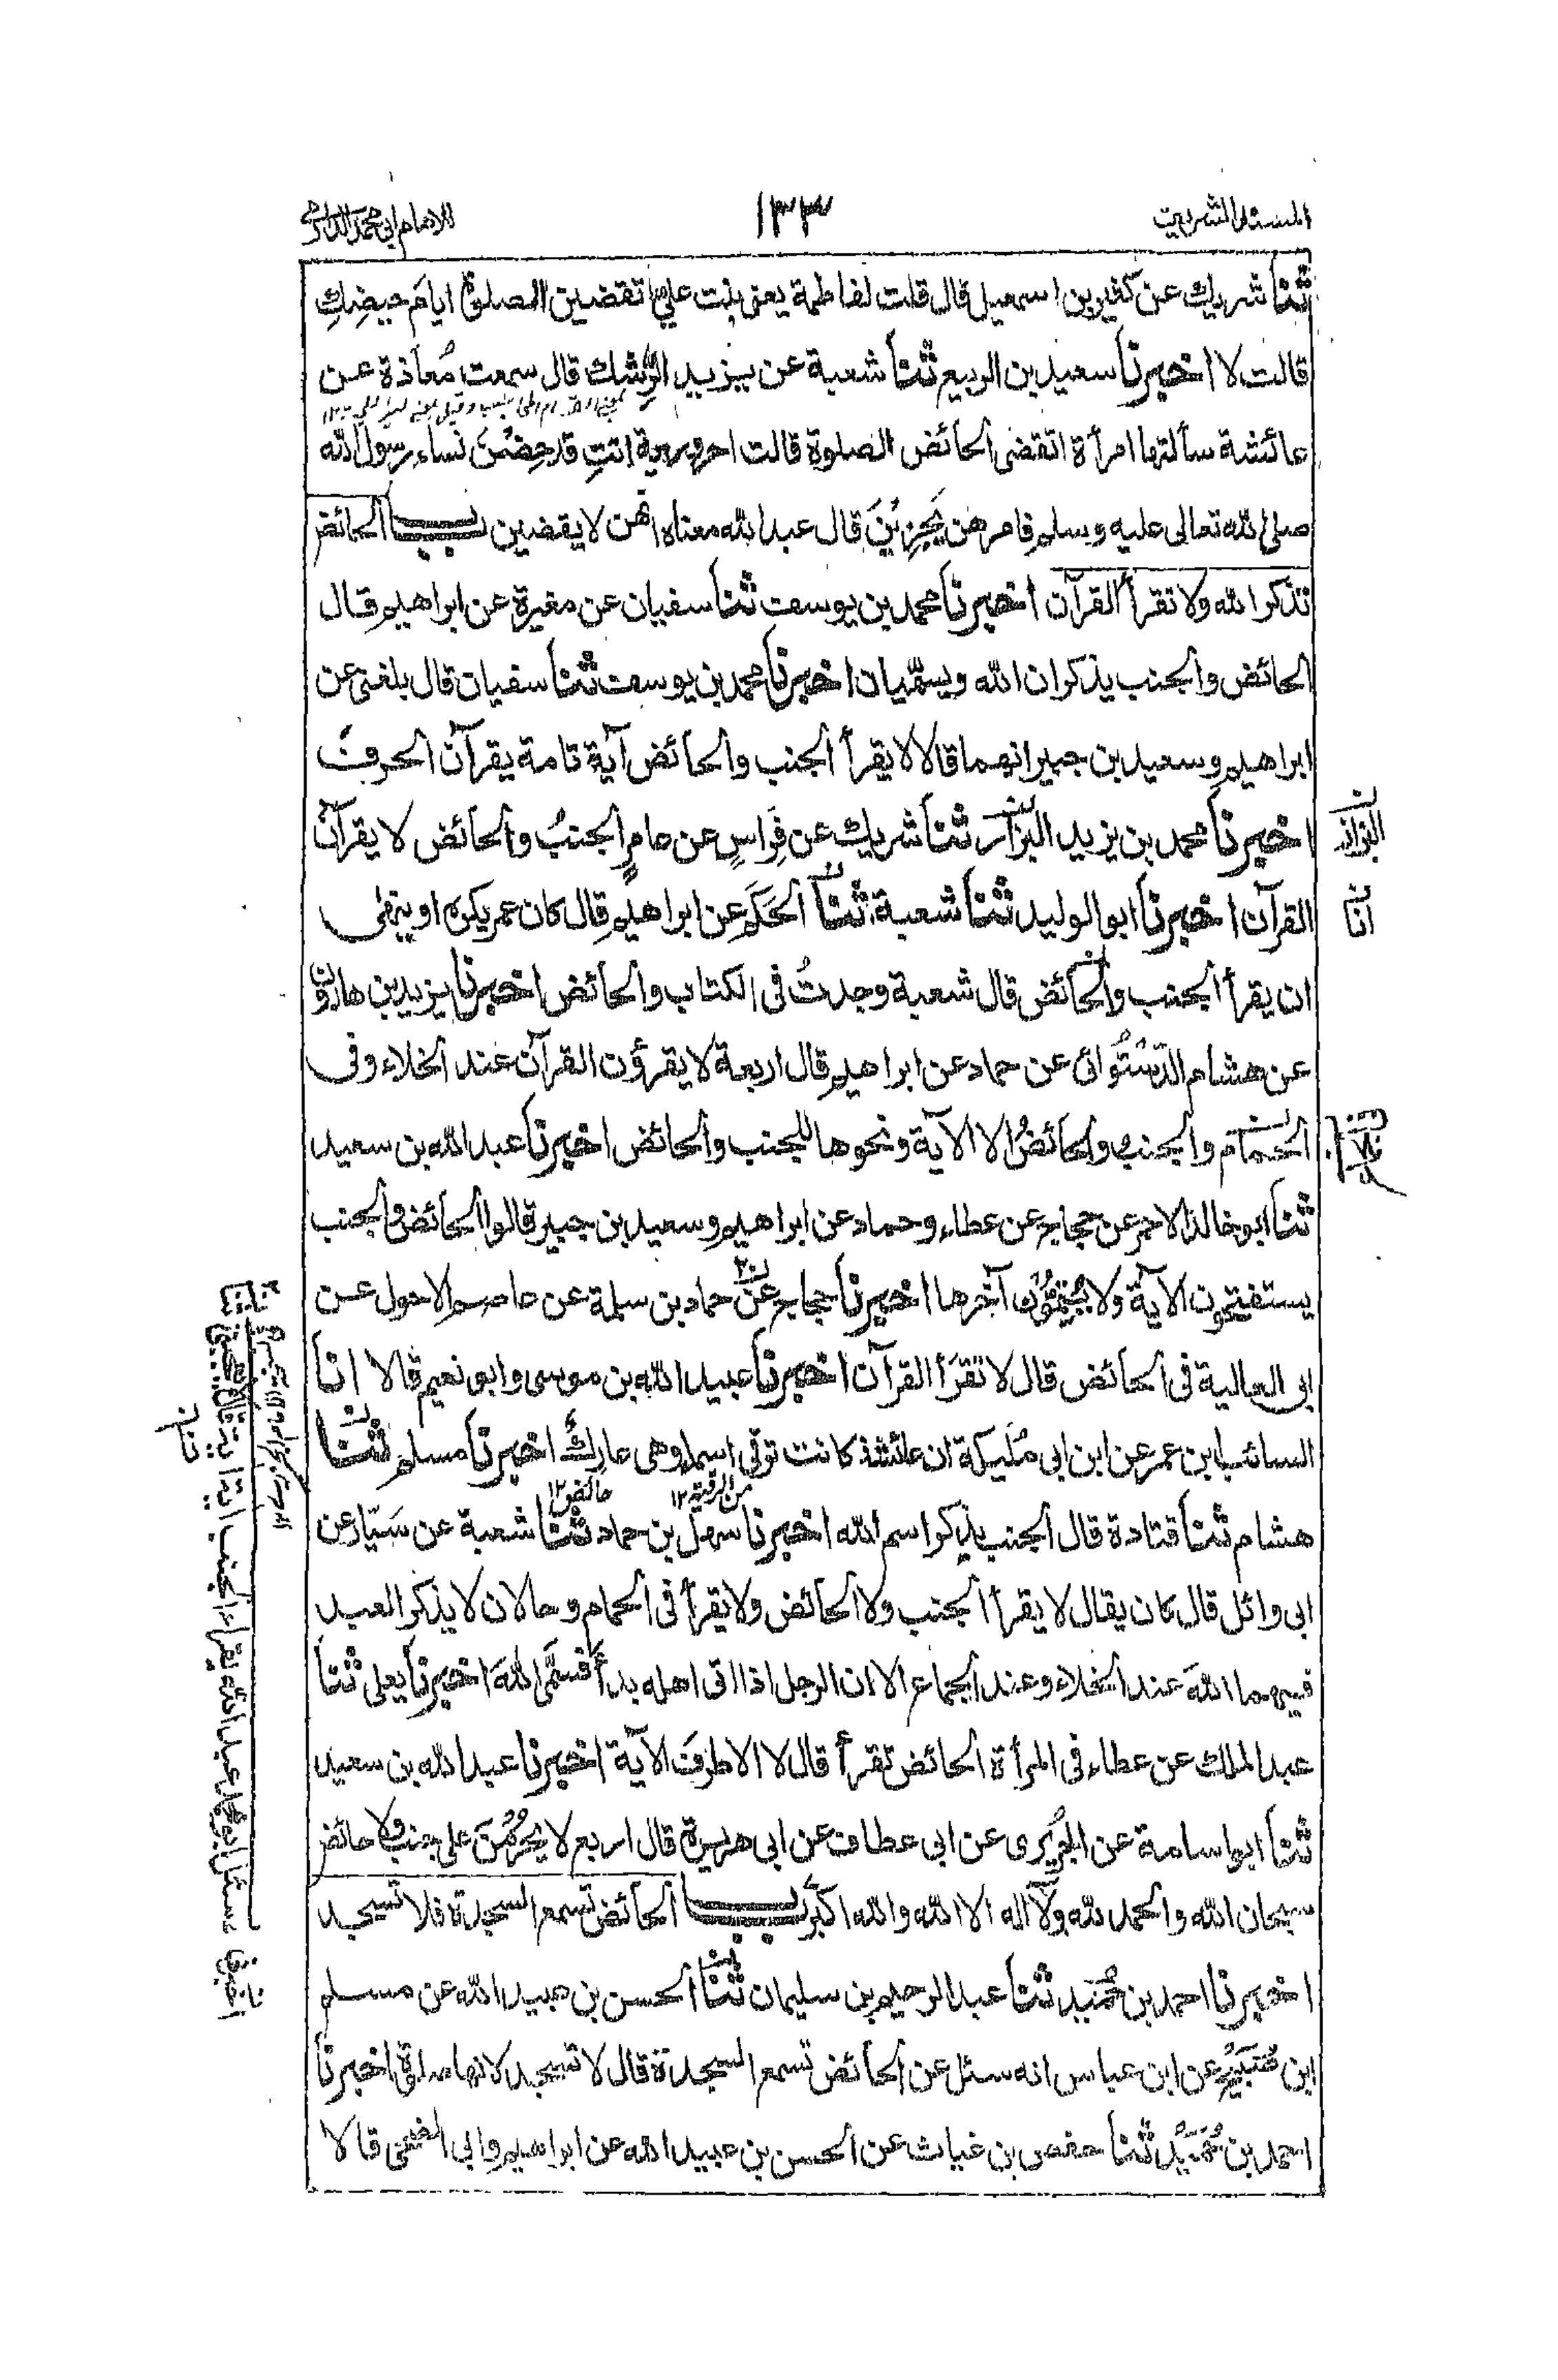 المسند الشريف
١٣٣
للامام ابى محمد الدارمى
ثنا شريك عن كثير بن اسمعيل قال قلت لفاطمة يعنى بنت على اتقضين الصلوة ايام حيضك
قالت لا اخبرنا سعيد بن الربيع ثنا شعبة عن يزيد الرِّشك قال سمعت مُعاذة عن
عائشة سألتها امرأة اتقضى الحائض الصلوة قالت احرورية انتِ قد حِضْنَ نساء رسول الله
صلى الله تعالى عليه وسلم فامرهن يَجزِينَ قال عبد الله معناه انهن لا يقضين باب الحائض
تذكر الله ولا تقرأ القرآن اخبرنا محمد بن يوسف ثنا سفيان عن مغيرة عن ابراهيم قال
الحائض والجنب يذكران الله ويسمّيان اخبرنا محمد بن يوسف ثنا سفيان قال بلغنى عن
ابراهيم وسعيد بن جبير انهما قالا لا يقرأ الجنب والحائض آية تامة يقرآن الحرف
اخبرنا محمد بن يزيد البزار ثنا شريك عن فِراسٍ عن عامرٍ الجنبُ والحائض لا يقرآن
البزاز
القرآن اخبرنا ابو الوليد ثنا شعبة ثنا الحَكَم عن ابراهيم قال كان عمر يكره او ينهى
انا
ان يقرأ الجنب والحائض قال شعبة وجدتُ فى الكتاب والحائض اخبرنا يزيد بن هارون
عن هشام الدَّسْتُوائى عن حماد عن ابراهيم قال اربعة لا يقرؤن القرآن عند الخلاء وفى
الحمام والجنب والحائضُ الا الآية ونحوها للجنب والحائض اخبرنا عبد الله بن سعيد
ثنا ابو خالد الاحمر عن حجاج عن عطاء وحماد عن ابراهيم وسعيد بن جبير قالوا الحائض والجنب
يستفتحون الآية ولا يُتِمُّون آخرها اخبرنا حجاج عن حماد بن سلمة عن عاصم الاحول عن
ابى العالية فى الحائض قال لا تقرَأ القرآن اخبرنا عبيد الله بن موسى وابو نعيم قالا انا
السائب بن عمر عن ابن ابى مُلَيكة ان عائشة كانت ترقى اسماء وهى عارِكٌ اخبرنا مسلم ثنا
من الرقية ١٢
حائض ١٢
هشام ثنا قتادة قال الجنب يذكر اسم الله اخبرنا سهل بن حماد ثنا شعبة عن سَيّار عن
ابى وائل قال كان يقال لا يقرأ الجنب ولا الحائض ولا يقرأ فى الحمام وحالان لا يذكر العبد
فيهما اللهَ عند الخلاء وعند الجماع الا ان الرجل اذا اتى اهله بدأ فسمّى اللهَ اخبرنا يعلى ثنا
عبد الملك عن عطاء فى المرأة الحائض تقرأ قال لا الا طرف الآية اخبرنا عبد الله بن سعيد
ثنا ابو اسامة عن الجُرَيرى عن ابى عطاف عن ابى هريرة قال اربع لا يَحْرُمْنَ على جنب ولا حائض
سبحان الله والحمد لله ولا اله الا الله والله اكبر باب الحائض تسمع السجدة فلا تسجد
اخبرنا احمد بن حُمَيد ثنا عبد الرحيم بن سليمان ثنا الحسن بن عبيد الله عن مسلم
ابن صُبَيح عن ابن عباس انه سئل عن الحائض تسمع السجدة قال لا تسجد لانها صلاة اخبرنا
احمد بن حُمَيد ثنا حفص بن غياث عن الحسن بن عبيد الله عن ابراهيم وابى الضحى قالا